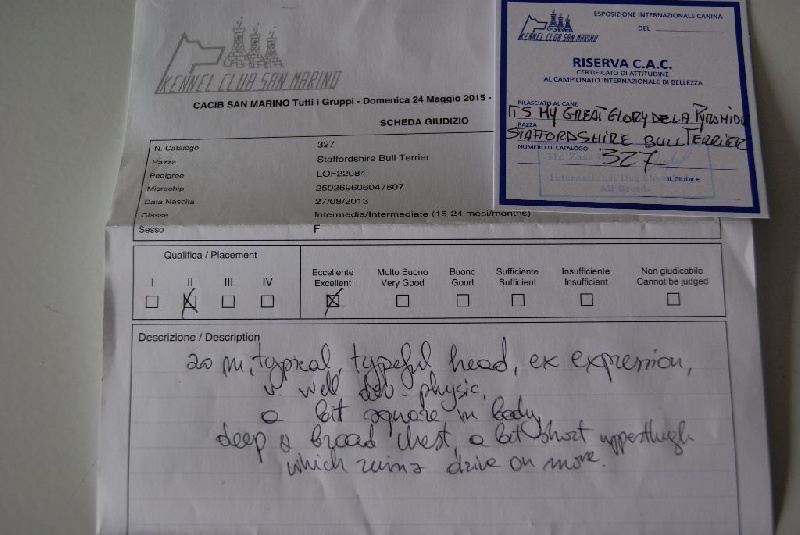 KENNEL CLUB SAN MARINO
CACIB SAN MARINO Tutti i Gruppi - Domenica 24 Maggio 2015 -
SCHEDA GIUDIZIO
N. Catalogo 327
Razza Staffordshire Bull Terrier
Pedigree LOF22084
Microchip 250269606047807
Data Nascita 27/08/2013
Classe Intermedia/Intermediate (15-24 mesi/months)
Sesso F
ESPOSIZIONE INTERNAZIONALE CANINA
KENNEL CLUB SAN MARINO
DEL
RISERVA C.A.C.
CERTIFICATO DI ATTITUDINE
AL CAMPIONATO INTERNAZIONALE DI BELLEZZA
RILASCIATO AL CANE
IT'S MY GREAT GLORY DE LA PYRAMID
RAZZA
STAFFORDSHIRE BULL TERRIER
NUMERO CATALOGO 327
International Dog
All Breeds
Il Giudice
Qualifica / Placement
I II III IV
Eccellente Molto Buono Buono Sufficiente Insufficiente Non giudicabile
Excellent Very Good Good Sufficient Insufficient Cannot be judged
Descrizione / Description
20 m, typical, typeful head, ex expression,
v well dev. physic,
a bit square in body,
deep & broad chest, a bit short upperthigh
which ruins drive on move.